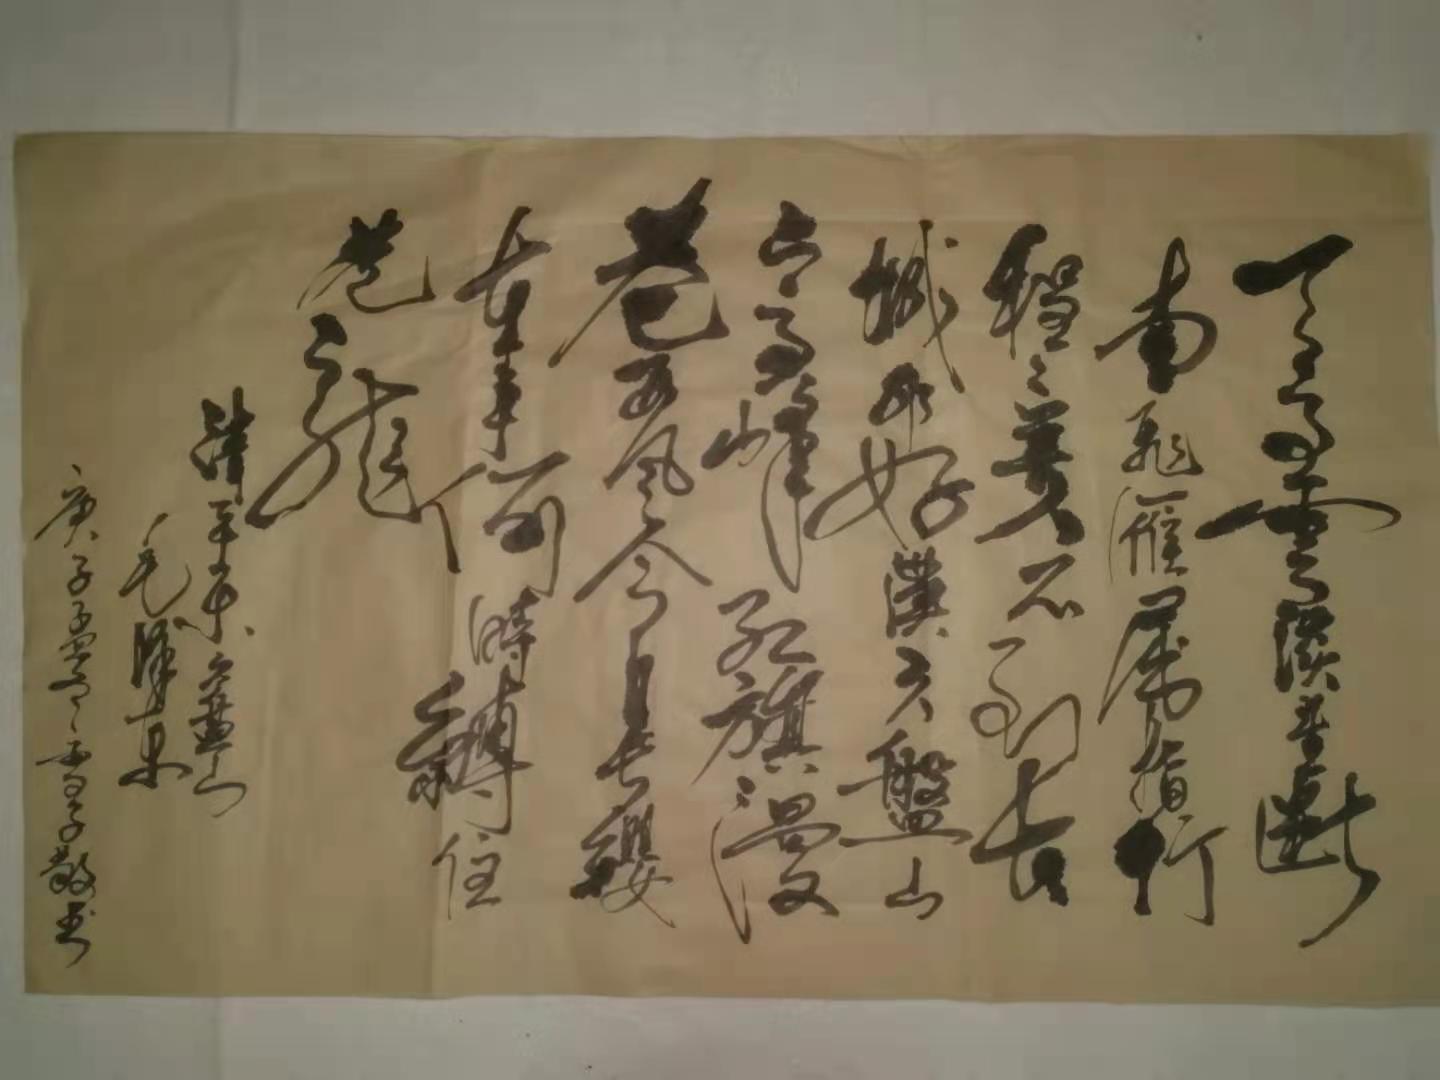 天高雲淡望断
南飛雁屈指行
程二萬不到长
城非好漢六盤山
上高峰红旗漫
卷西风今日长缨
在手何時縛住
苍龍
清平乐六盘山
毛泽东
庚子
书